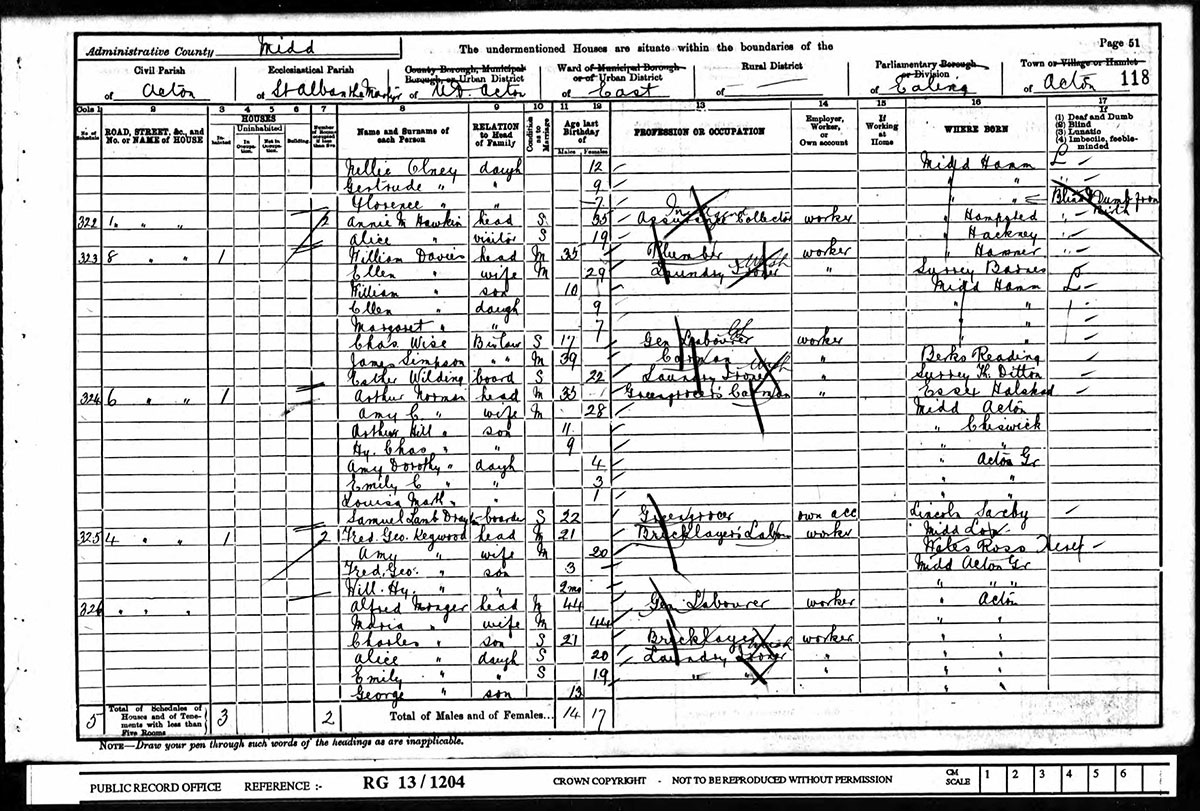 Administrative County Midd
The undermentioned Houses are situate within the boundaries of the
Page 51
Civil Parish
of Acton
Ecclesiastical Parish
of St Alban the Martyr
County Borough, Municipal Borough, or Urban District
of U.D. Acton
Ward of Municipal Borough or of Urban District
of East
Rural District
of —
Parliamentary Borough or Division
of Ealing
Town or Village or Hamlet
of Acton
118
Cols 1 2 3 4 5 6 7 8 9 10 11 12 13 14 15 16 17
No. of Schedule
ROAD, STREET, &c., and No. or NAME of HOUSE
HOUSES
Inhabited
Uninhabited
In Occupation.
Not in Occupation.
Building.
Number of Rooms occupied if less than five
Name and Surname of each Person
RELATION to Head of Family
Condition as to Marriage
Age last Birthday of
Males Females
PROFESSION OR OCCUPATION
Employer, Worker, or Own account
If Working at Home
WHERE BORN
If (1) Deaf and Dumb (2) Blind (3) Lunatic (4) Imbecile, feeble-minded
Nellie Olney daugh 12 Midd Hamm
Gertrude " " 9 " "
Florence " " 7 " " Blind & Dumb from Birth
322 " " 2 Annie M Hawkin head S 35 Assurance Collector worker " Hampsted
Alice " visitor S 19 " Hackney
323 8 " " 1 William Davies head M 35 Plumber worker " Hanner
Ellen " wife M 29 Laundry Ironer Wash " Surrey Barnes
William " son 10 Midd Hamm
Ellen " daugh 9 " "
Margaret " " 7 " "
Chas Wise S 17 Gen Labourer worker " "
James Simpson " " M 39 Carman " Berks Reading
Esther Wilding board S 22 Laundry Ironer Wash " Surrey Th. Ditton
324 6 " " 1 Arthur Norman head M 35 Greengrocer's Carman " Essex Halstead
Amy C. " wife M 28 Midd Acton
Arthur Will " son 11 " Chiswick
Hy. Chas " " 9 " "
Amy Dorothy " daugh 4 " Acton Gr
Emily C " " 3 " "
Louisa " " 1 " "
Samuel Lamb boarder S 22 Greengrocer own acc Lincoln Saxby
325 4 " " 1 2 Fred. Geo. Regwood head M 21 Bricklayer's Labor worker Midd Lon
Amy " wife M 20 Wales Ross Heref
Fred. Geo. " son 3 Midd Acton Gr
Will. Hy. " " 2mo " " "
326 " " " Alfred Monger head M 44 Gen Labourer worker " Acton
Maria " wife M 44 " "
Charles " son S 21 Bricklayer worker " "
Alice " daugh S 20 Laundry Ironer Wash " " "
Emily " " S 19 " " " " "
George " son 13 " "
5 Total of Schedules of Houses and of Tenements with less than Five Rooms 3 2 Total of Males and of Females... 14 17
NOTE—Draw your pen through such words of the headings as are inapplicable.
PUBLIC RECORD OFFICE REFERENCE :- RG 13/1204 CROWN COPYRIGHT - NOT TO BE REPRODUCED WITHOUT PERMISSION CM SCALE 1 2 3 4 5 6